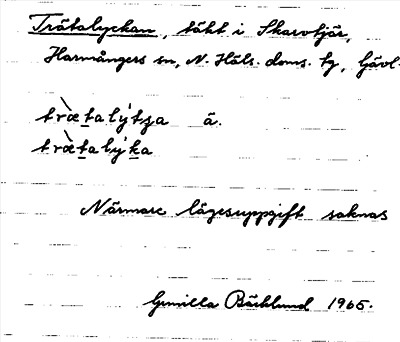 Trätalyckan, täkt i Skarvtjär,
Harmångers sn, N. Häls. doms. tg, Gävl.
træ̀talýtʂa ä.
træ̀talýka
Närmare lägesuppgift saknas
Gunilla Bäcklund 1965.